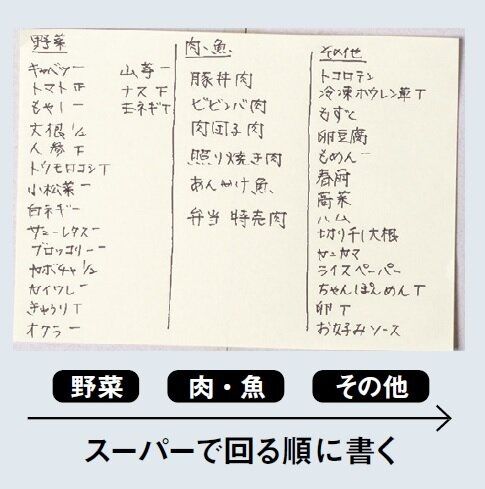 野菜
キャベツ一
トマト正
もやし一
大根1/2
人参下
トウモロコシT
小松菜一
白ネギ一
サニーレタス一
ブロッコリー一
カボチャ1/2
カイワレ一
きゅうりT
オクラ一
山芋一
ナス下
玉ネギT
肉、魚
豚丼肉
ビビンバ肉
肉団子肉
照り焼き肉
あんかけ魚
弁当 特売肉
その他
トコロテン
冷凍ホウレン草T
もずく
卵豆腐
もめん一
春雨
ハム
切り干し大根
ライスペーパー
ちゃんぽんめんT
卵T
お好みソース
野菜
肉・魚
その他
スーパーで回る順に書く